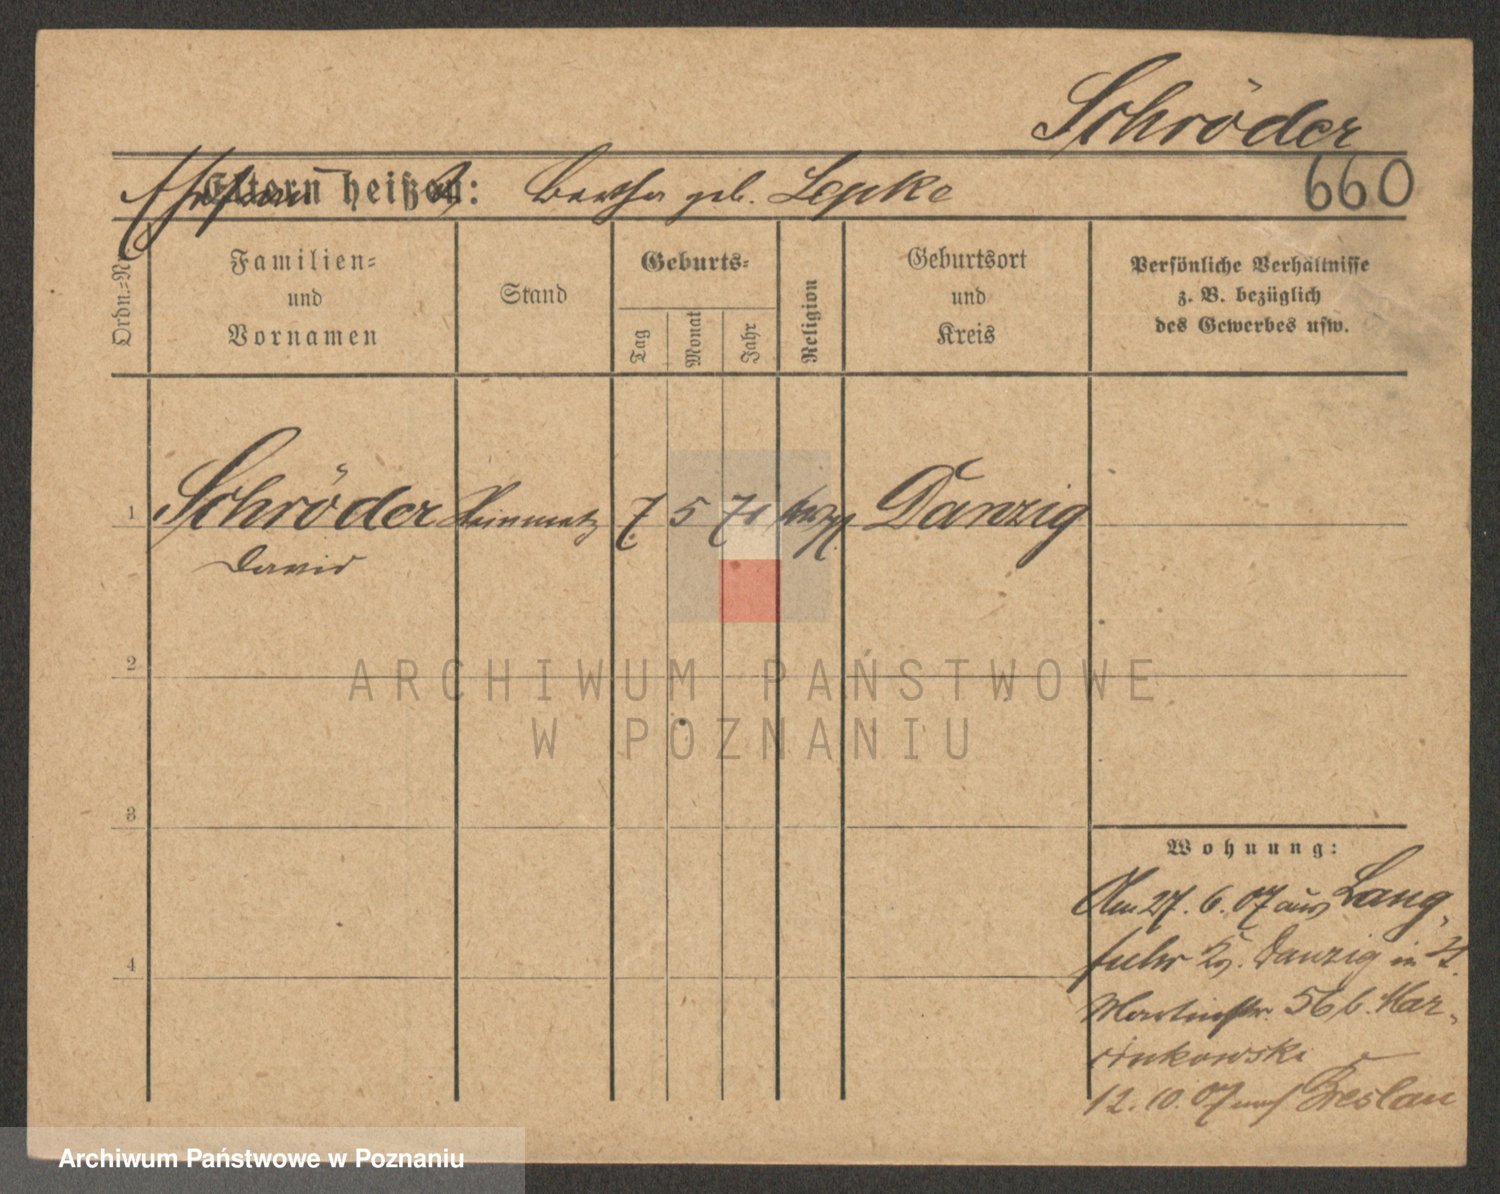 Schröder
660
Eltern heißen: Bertha geb. Lepke
Ordn.-Nr.
Familien-
und
Vornamen
Stand
Geburts-
Tag
Monat
Jahr
Religion
Geburtsort
und
Kreis
Persönliche Verhältnisse
z. B. bezüglich
des Gewerbes usw.
1 Schröder 7. 5 71 Danzig
David
2
ARCHIWUM PAŃSTWOWE
W POZNANIU
3
4
Wohnung:
Am 27. 6. 07 aus Lang-
fuhr Kr. Danzig in St.
Martinstr. 56 b. Mar-
cinkowski
12. 10. 07 nach Breslau
Archiwum Państwowe w Poznaniu